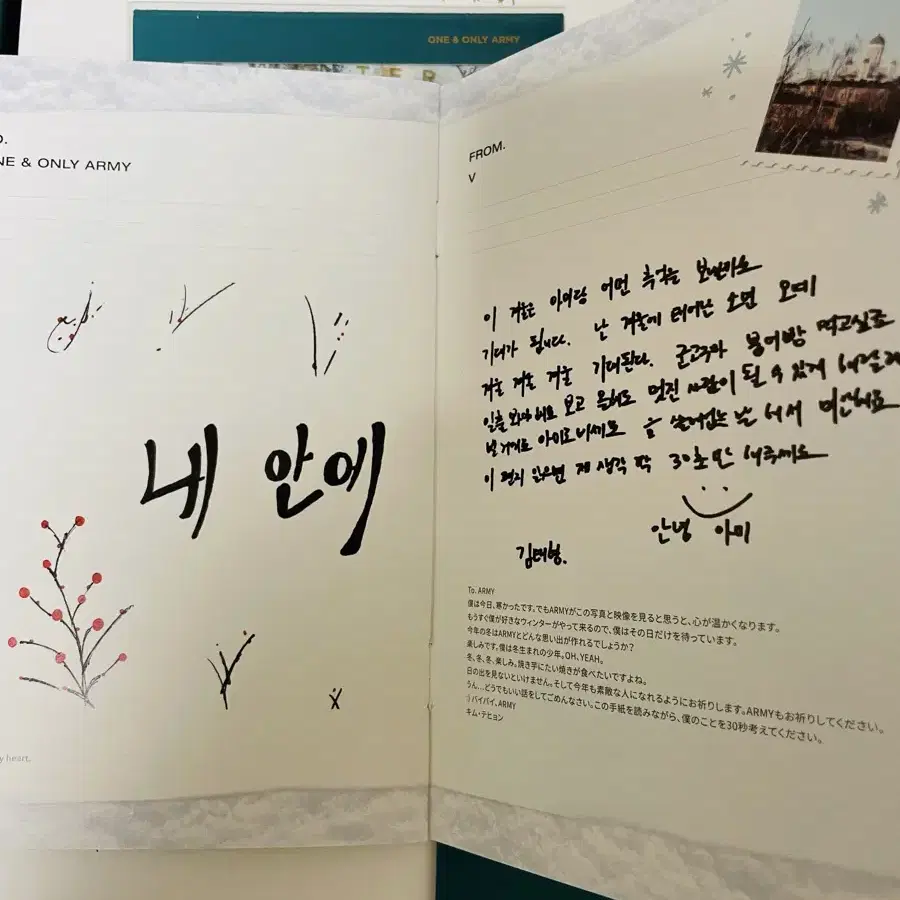 ONE & ONLY ARMY
T E R
O.
NE & ONLY ARMY
내 안에
y heart.
FROM.
V
이 겨울은 아미랑 어떤 추억을 보낼까요
기대가 됩니다. 난 겨울에 태어난 소년 오예
겨울 겨울 겨울 기대된다. 군고구마 붕어빵 먹고싶죠
일출 봐야 해요 보고 올해도 멋진 사람이 될 수 있게
빌거예요 아미도 비세요 음 쓸데없는 말 해서 미안해요
이 편지 읽으면 제 생각 딱 30초만 해주세요
안녕 아미
김태형.
To. ARMY
僕は今日、寒かったです。でもARMYがこの写真と映像を見ると思うと、心が温かくなります。
もうすぐ僕が好きなウィンターがやって来るので、僕はその日だけを待っています。
今年の冬はARMYとどんな思い出が作れるでしょうか?
楽しみです。僕は冬生まれの少年。OH、YEAH。
冬、冬、冬、楽しみ。焼き芋にたい焼きが食べたいですよね。
日の出を見ないといけません。そして今年も素敵な人になれるようにお祈りします。ARMYもお祈りしてください。
うん…どうでもいい話をしてごめんなさい。この手紙を読みながら、僕のことを30秒考えてください。
:) バイバイ、ARMY
キム・テヒョン